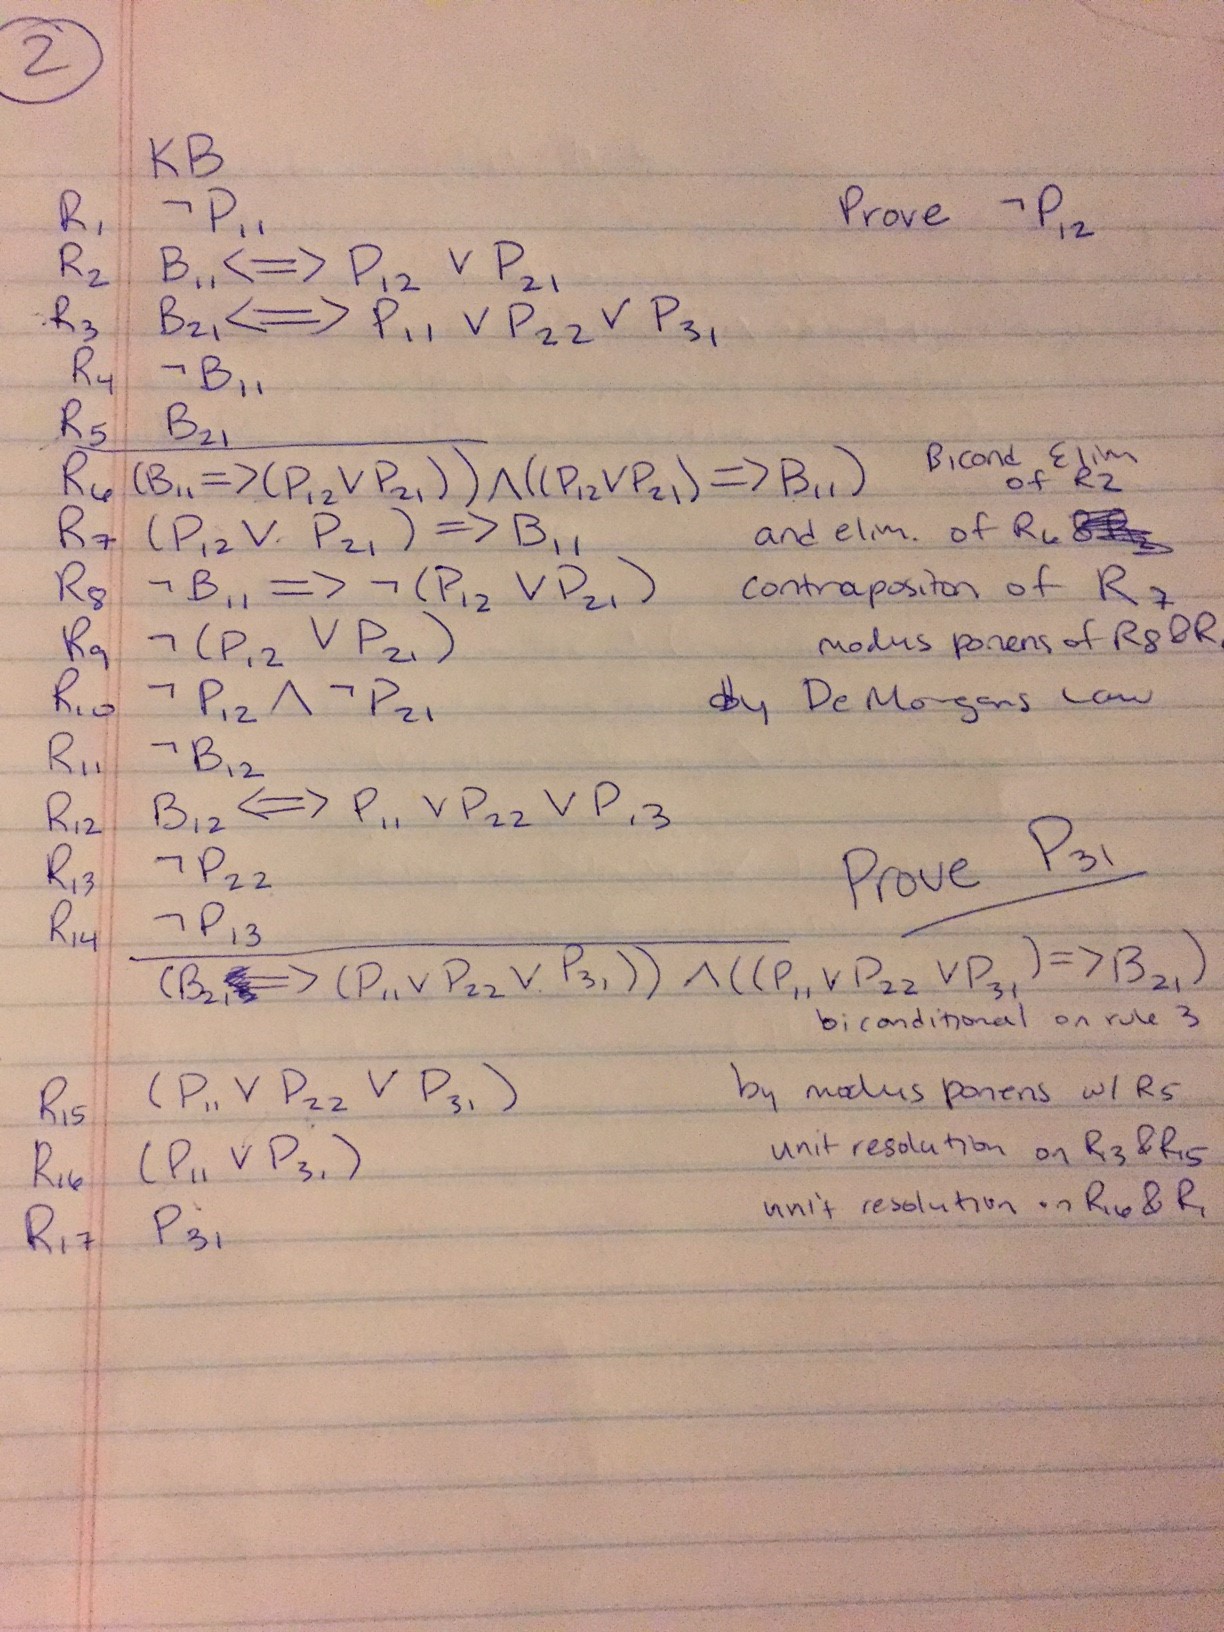 2
KB
R₁ ¬P₁₁ Prove ¬P₁₂
R₂ B₁₁ <=> P₁₂ ∨ P₂₁
R₃ B₂₁ <=> P₁₁ ∨ P₂₂ ∨ P₃₁
R₄ ¬B₁₁
R₅ B₂₁
R₆ (B₁₁=>(P₁₂∨P₂₁))∧((P₁₂∨P₂₁)=>B₁₁) Bicond Elim
of R2
R₇ (P₁₂ ∨ P₂₁) => B₁₁ and elim. of R₆
R₈ ¬B₁₁ => ¬(P₁₂ ∨ P₂₁) contrapositon of R₇
R₉ ¬(P₁₂ ∨ P₂₁) modus ponens of R8&R
R₁₀ ¬P₁₂ ∧ ¬P₂₁ by De Morgans Law
R₁₁ ¬B₁₂
R₁₂ B₁₂ <=> P₁₁ ∨ P₂₂ ∨ P₁₃
R₁₃ ¬P₂₂ Prove P₃₁
R₁₄ ¬P₁₃
(B₂₁ => (P₁₁ ∨ P₂₂ ∨ P₃₁)) ∧ ((P₁₁ ∨ P₂₂ ∨ P₃₁) => B₂₁)
biconditional on rule 3
R₁₅ (P₁₁ ∨ P₂₂ ∨ P₃₁) by modus ponens w/ R5
R₁₆ (P₁₁ ∨ P₃₁) unit resolution on R₁3 & R₁₅
R₁₇ P₃₁ unit resolution on R₁₆ & R₁